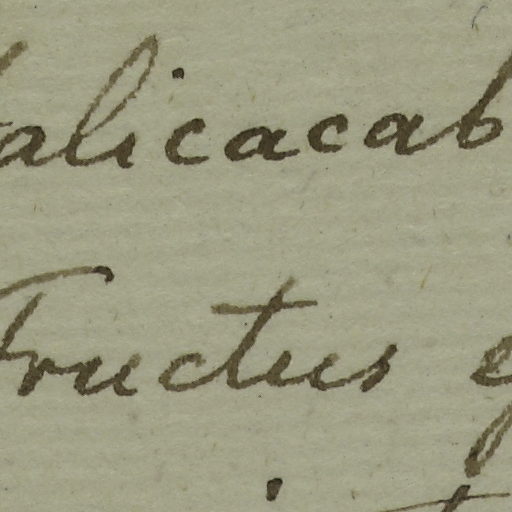 alicacab
Fructus